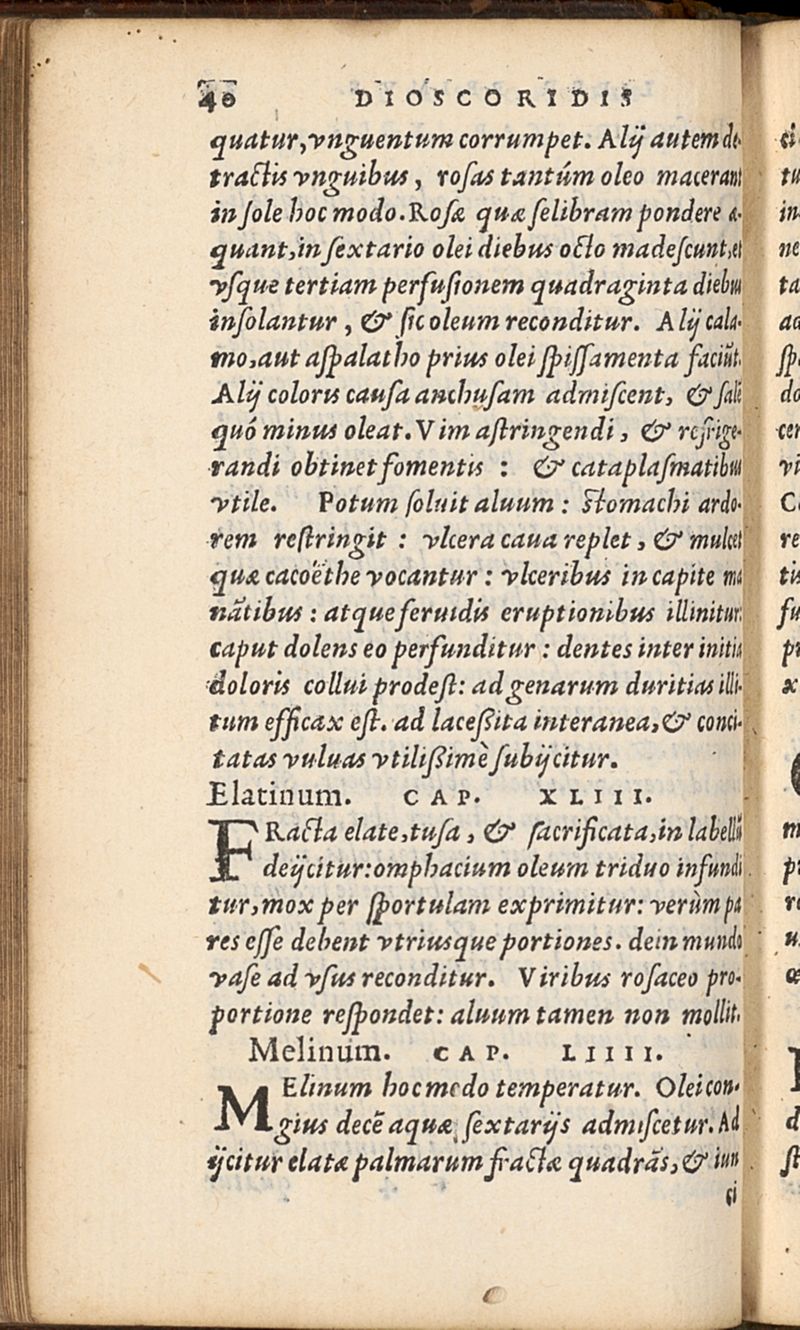 40 DIOSCORIDIS
quatur,vnguentum corrumpet. Alij autem de-
tractis vnguibus, rosas tantúm oleo macerant
in sole hoc modo. Rosæ quæ selibram pondere æ-
quant,in sextario olei diebus octo madescunt,et
vsque tertiam perfusionem quadraginta diebus
insolantur, & sic oleum reconditur. Alij cala-
mo,aut aspalatho prius olei spissamenta faciūt.
Alij coloris causa anchusam admiscent, & salē
quó minus oleat. Vim astringendi, & refrige-
randi obtinet fomentis : & cataplasmatibus
vtile. Potum soluit aluum : stomachi ardo-
rem restringit : vlcera caua replet, & mulcet
quæ cacoëthe vocantur : vlceribus in capite ma
nātibus : atque feruidis eruptionibus illinitur:
caput dolens eo perfunditur : dentes inter initia
doloris collui prodest: ad genarum duritias illi-
tum efficax est. ad lacessita interanea,& conci-
tatas vuluas vtilissimè subijcitur.
Elatinum. CAP. XLIII.
FRacta elate,tusa, & sacrificata,in labellū
deijcitur:omphacium oleum triduo infundi
tur,mox per sportulam exprimitur: verùm pa
res esse debent vtriusque portiones. dein mundo
vase ad vsus reconditur. Viribus rosaceo pro-
portione respondet: aluum tamen non mollit.
Melinum. CAP. LIIII.
MElinum hoc modo temperatur. Olei con-
gius decē aquæ sextarijs admiscetur. Ad
ijcitur elatæ palmarum fractæ quadrās, & iun
ci